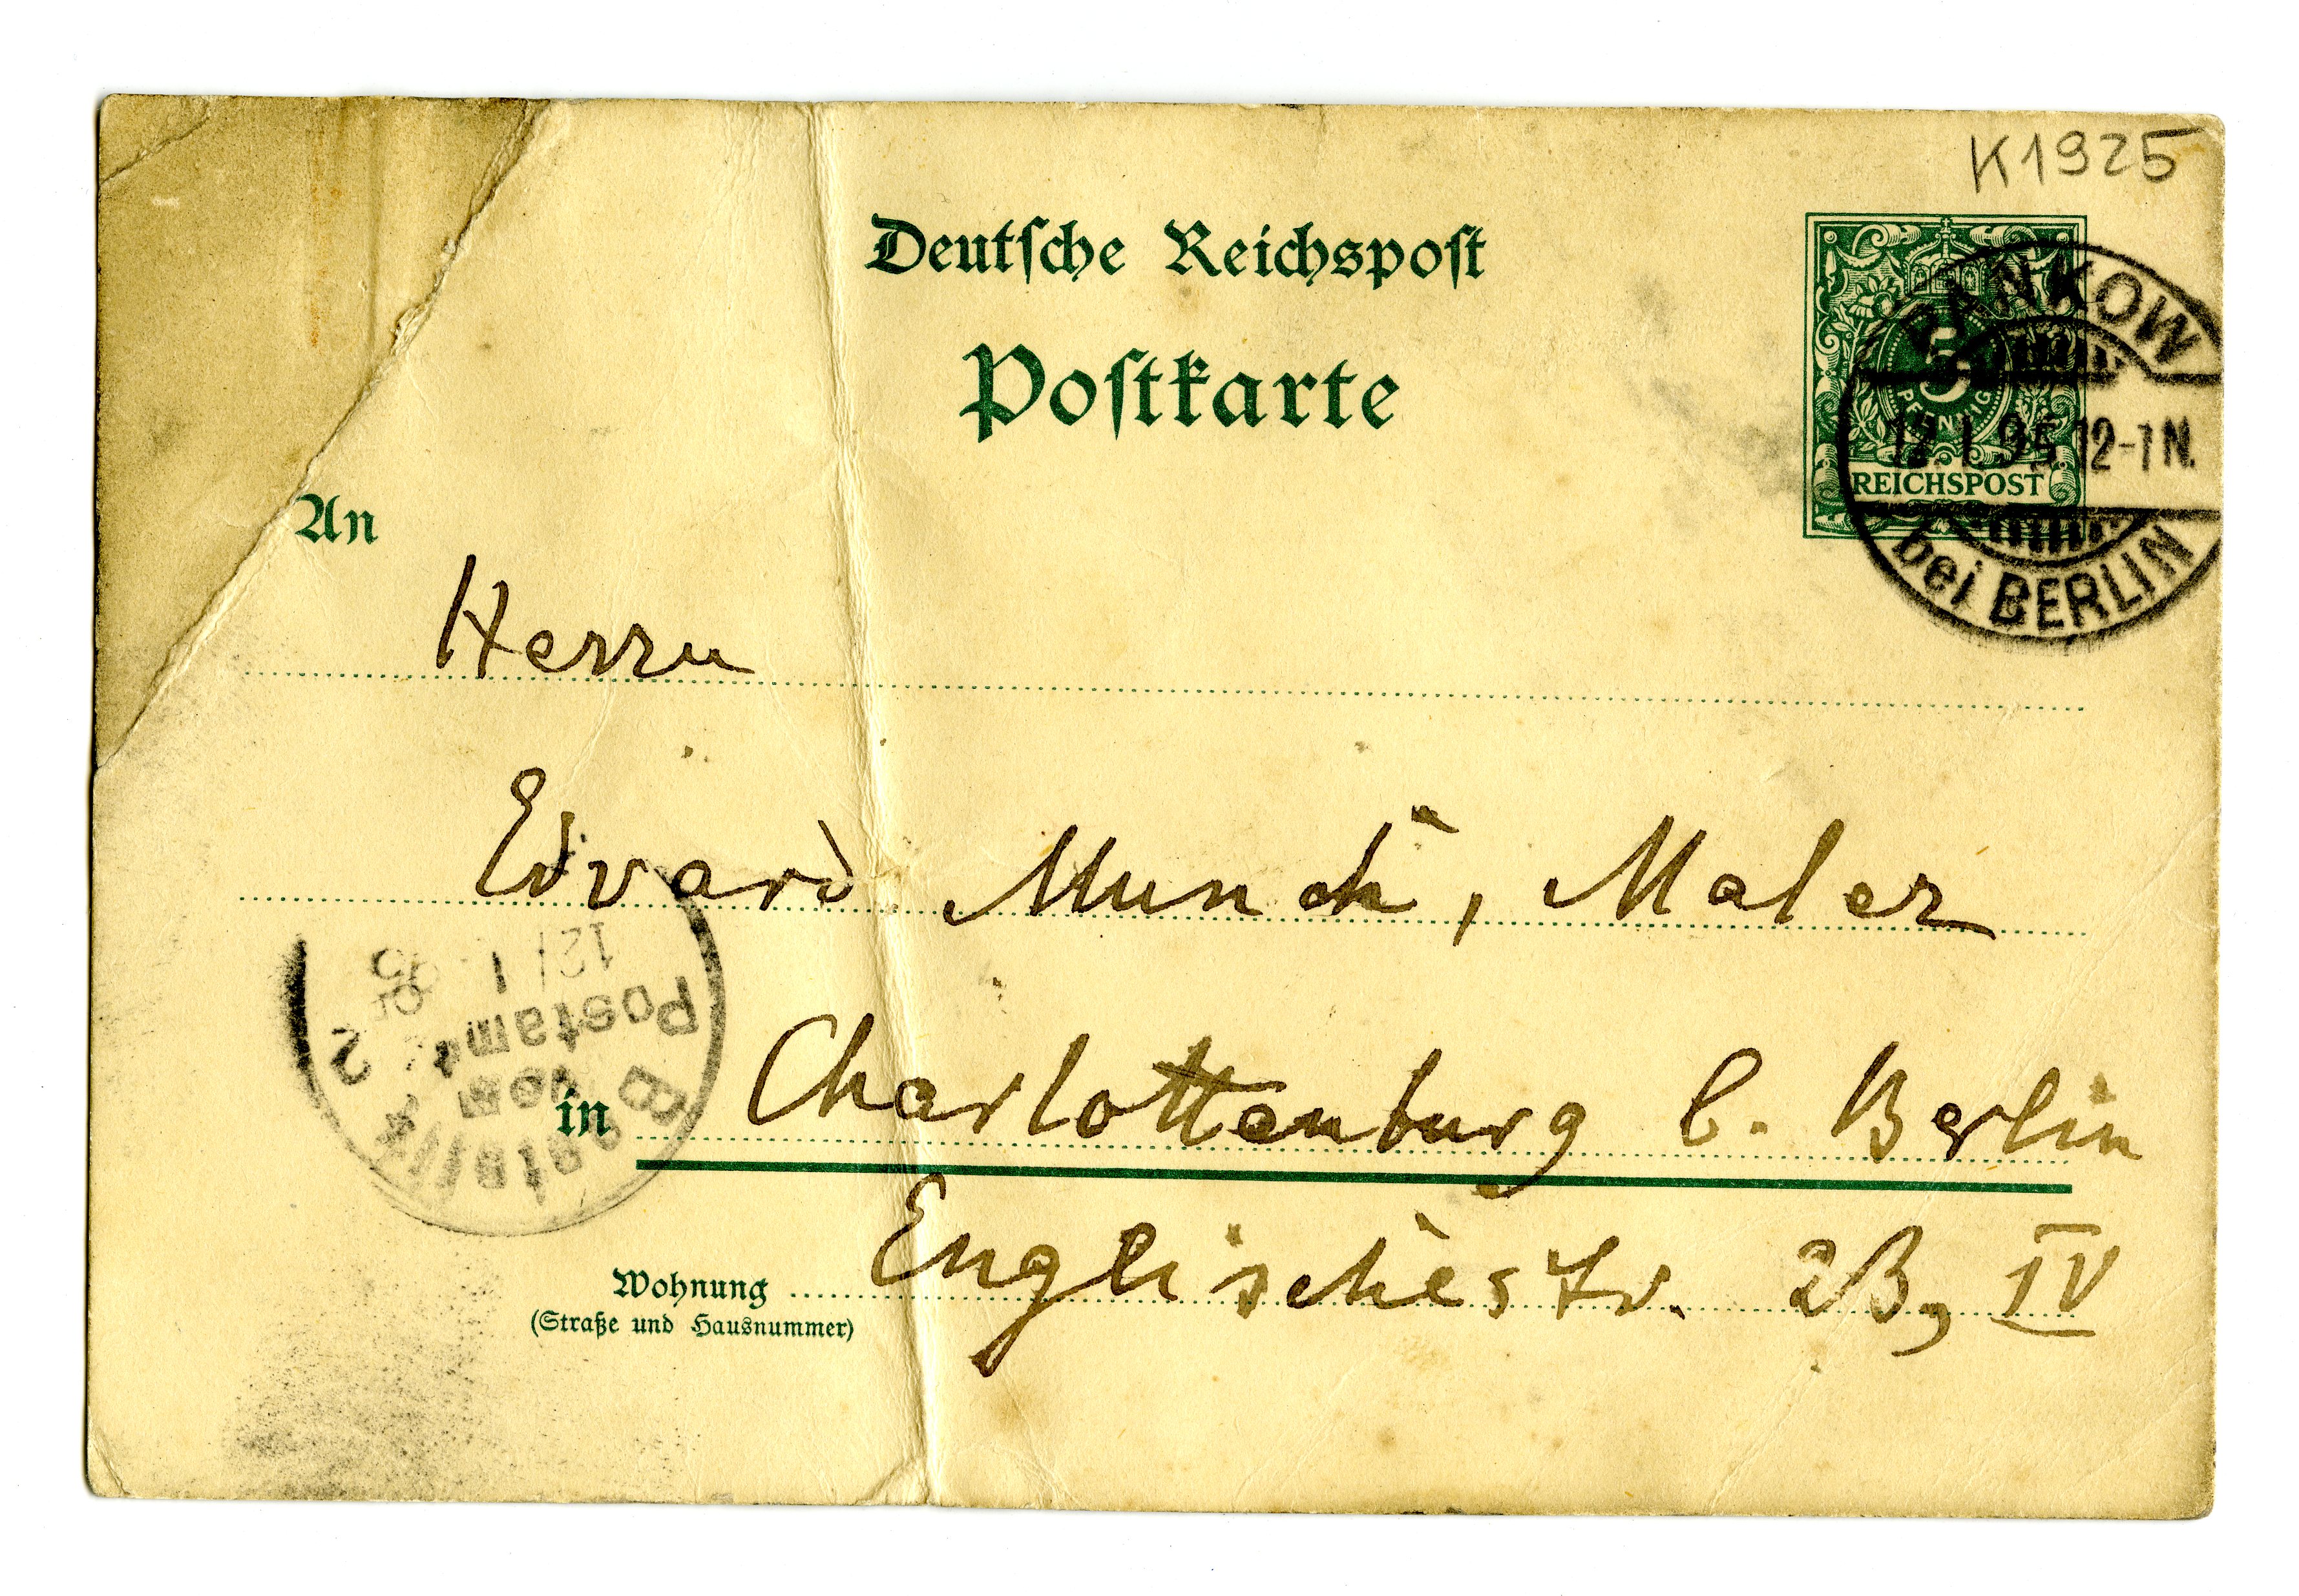 K1925
Deutsche Reichspost
Postkarte
5
PFENNIG
REICHSPOST
PANKOW
12.1.95 12-1N.
bei BERLIN
An
Herrn
Edvard Munch, Maler
in Charlottenburg b. Berlin
Wohnung Englischestr. 2B, IV
(Straße und Hausnummer)
Bestellt
vom
Postamte 2
12/1 95